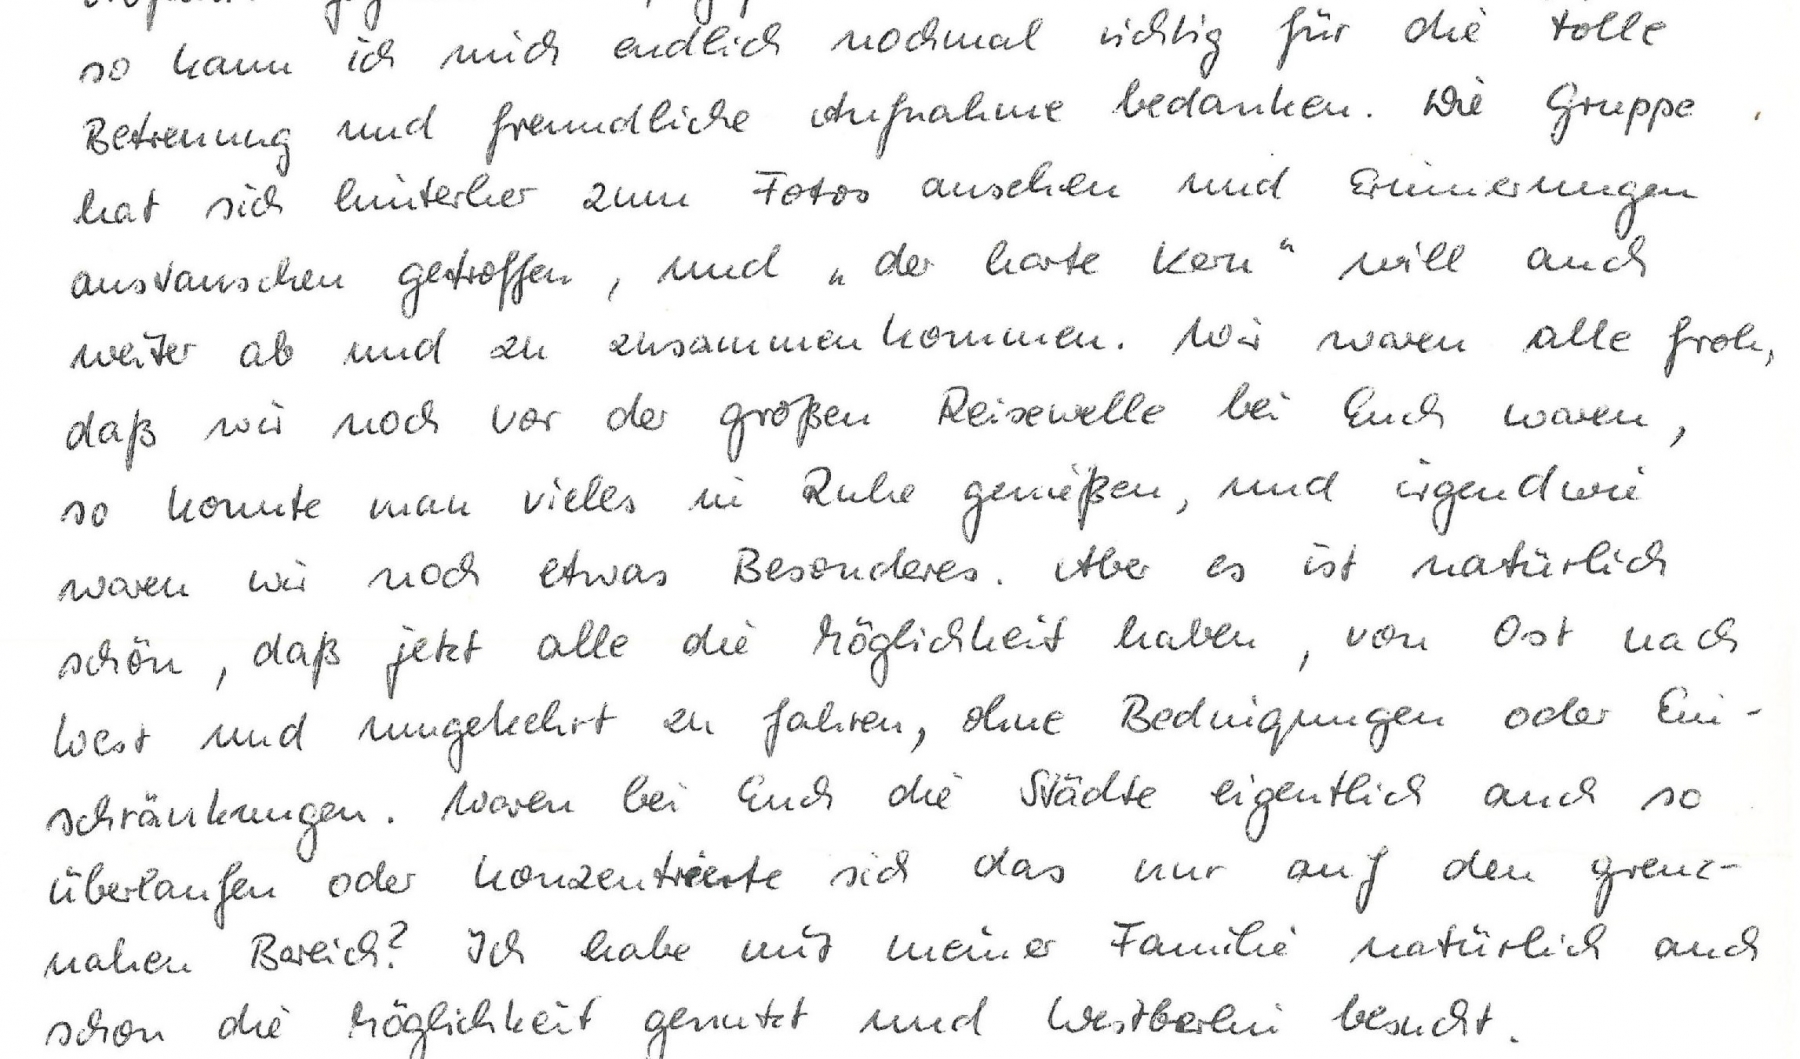 so kann ich mich endlich nochmal richtig für die tolle
Betreuung und freundliche Aufnahme bedanken. Die Gruppe
hat sich hinterher zum Fotos ansehen und Erinnerungen
austauschen getroffen, und „der harte Kern“ will auch
weiter ab und zu zusammenkommen. Wir waren alle froh,
daß wir noch vor der großen Reisewelle bei Euch waren,
so konnte man vieles in Ruhe genießen, und irgendwie
waren wir noch etwas Besonderes. Aber es ist natürlich
schön, daß jetzt alle die Möglichkeit haben, von Ost nach
West und umgekehrt zu fahren, ohne Bedingungen oder Ein-
schränkungen. Waren bei Euch die Städte eigentlich auch so
überlaufen oder konzentrierte sich das nur auf den grenz-
nahen Bereich? Ich habe mit meiner Familie natürlich auch
schon die Möglichkeit genutzt und Westberlin besucht.